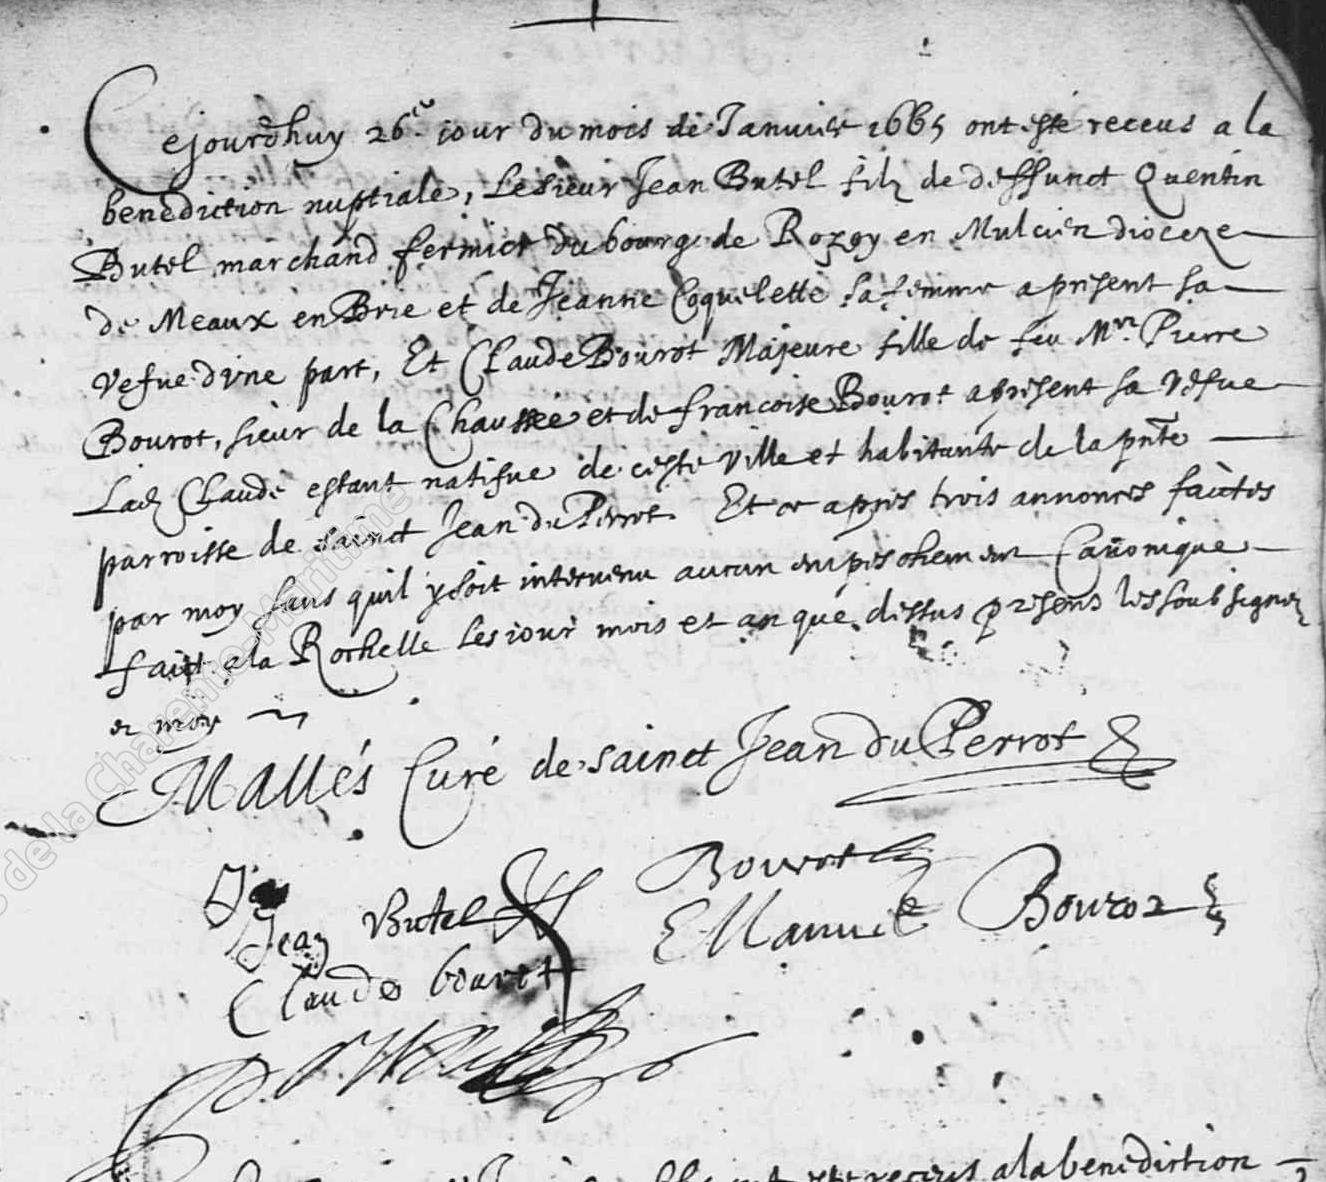 Cejourd'huy 26e iour du mois de Januier 1665 ont esté receus a la
benediction nuptiale, Le sieur Jean Butel filz de deffunct Quentin
Butel marchand fermier du bourg de Rozoy en Mulcien dioceze
de Meaux en Brie et de Jeanne Coquelette sa femme a present sa
vefue d'vne part, Et Claude Bourot Majeure fille de feu Mre Pierre
Bourot, sieur de la Chaussée et de francoise Bourot a present sa vefue
Lad. Claude estant natifue de ceste ville et habitante de la pnte
parroisse de sainct Jean du Perrot. Et ce apres trois annonces faictes
par moy sans quil y soit interuenu aucun empeschement Canonique
faict a la Rochelle les iour mois et an que dessus presens les soubsignez
et moy
Mallés Curé de sainct Jean du Perrot
Bourot
Jean Butel
Emanuel Bourot
Claude bourot
receus a la benediction
Charente-Maritime
de la